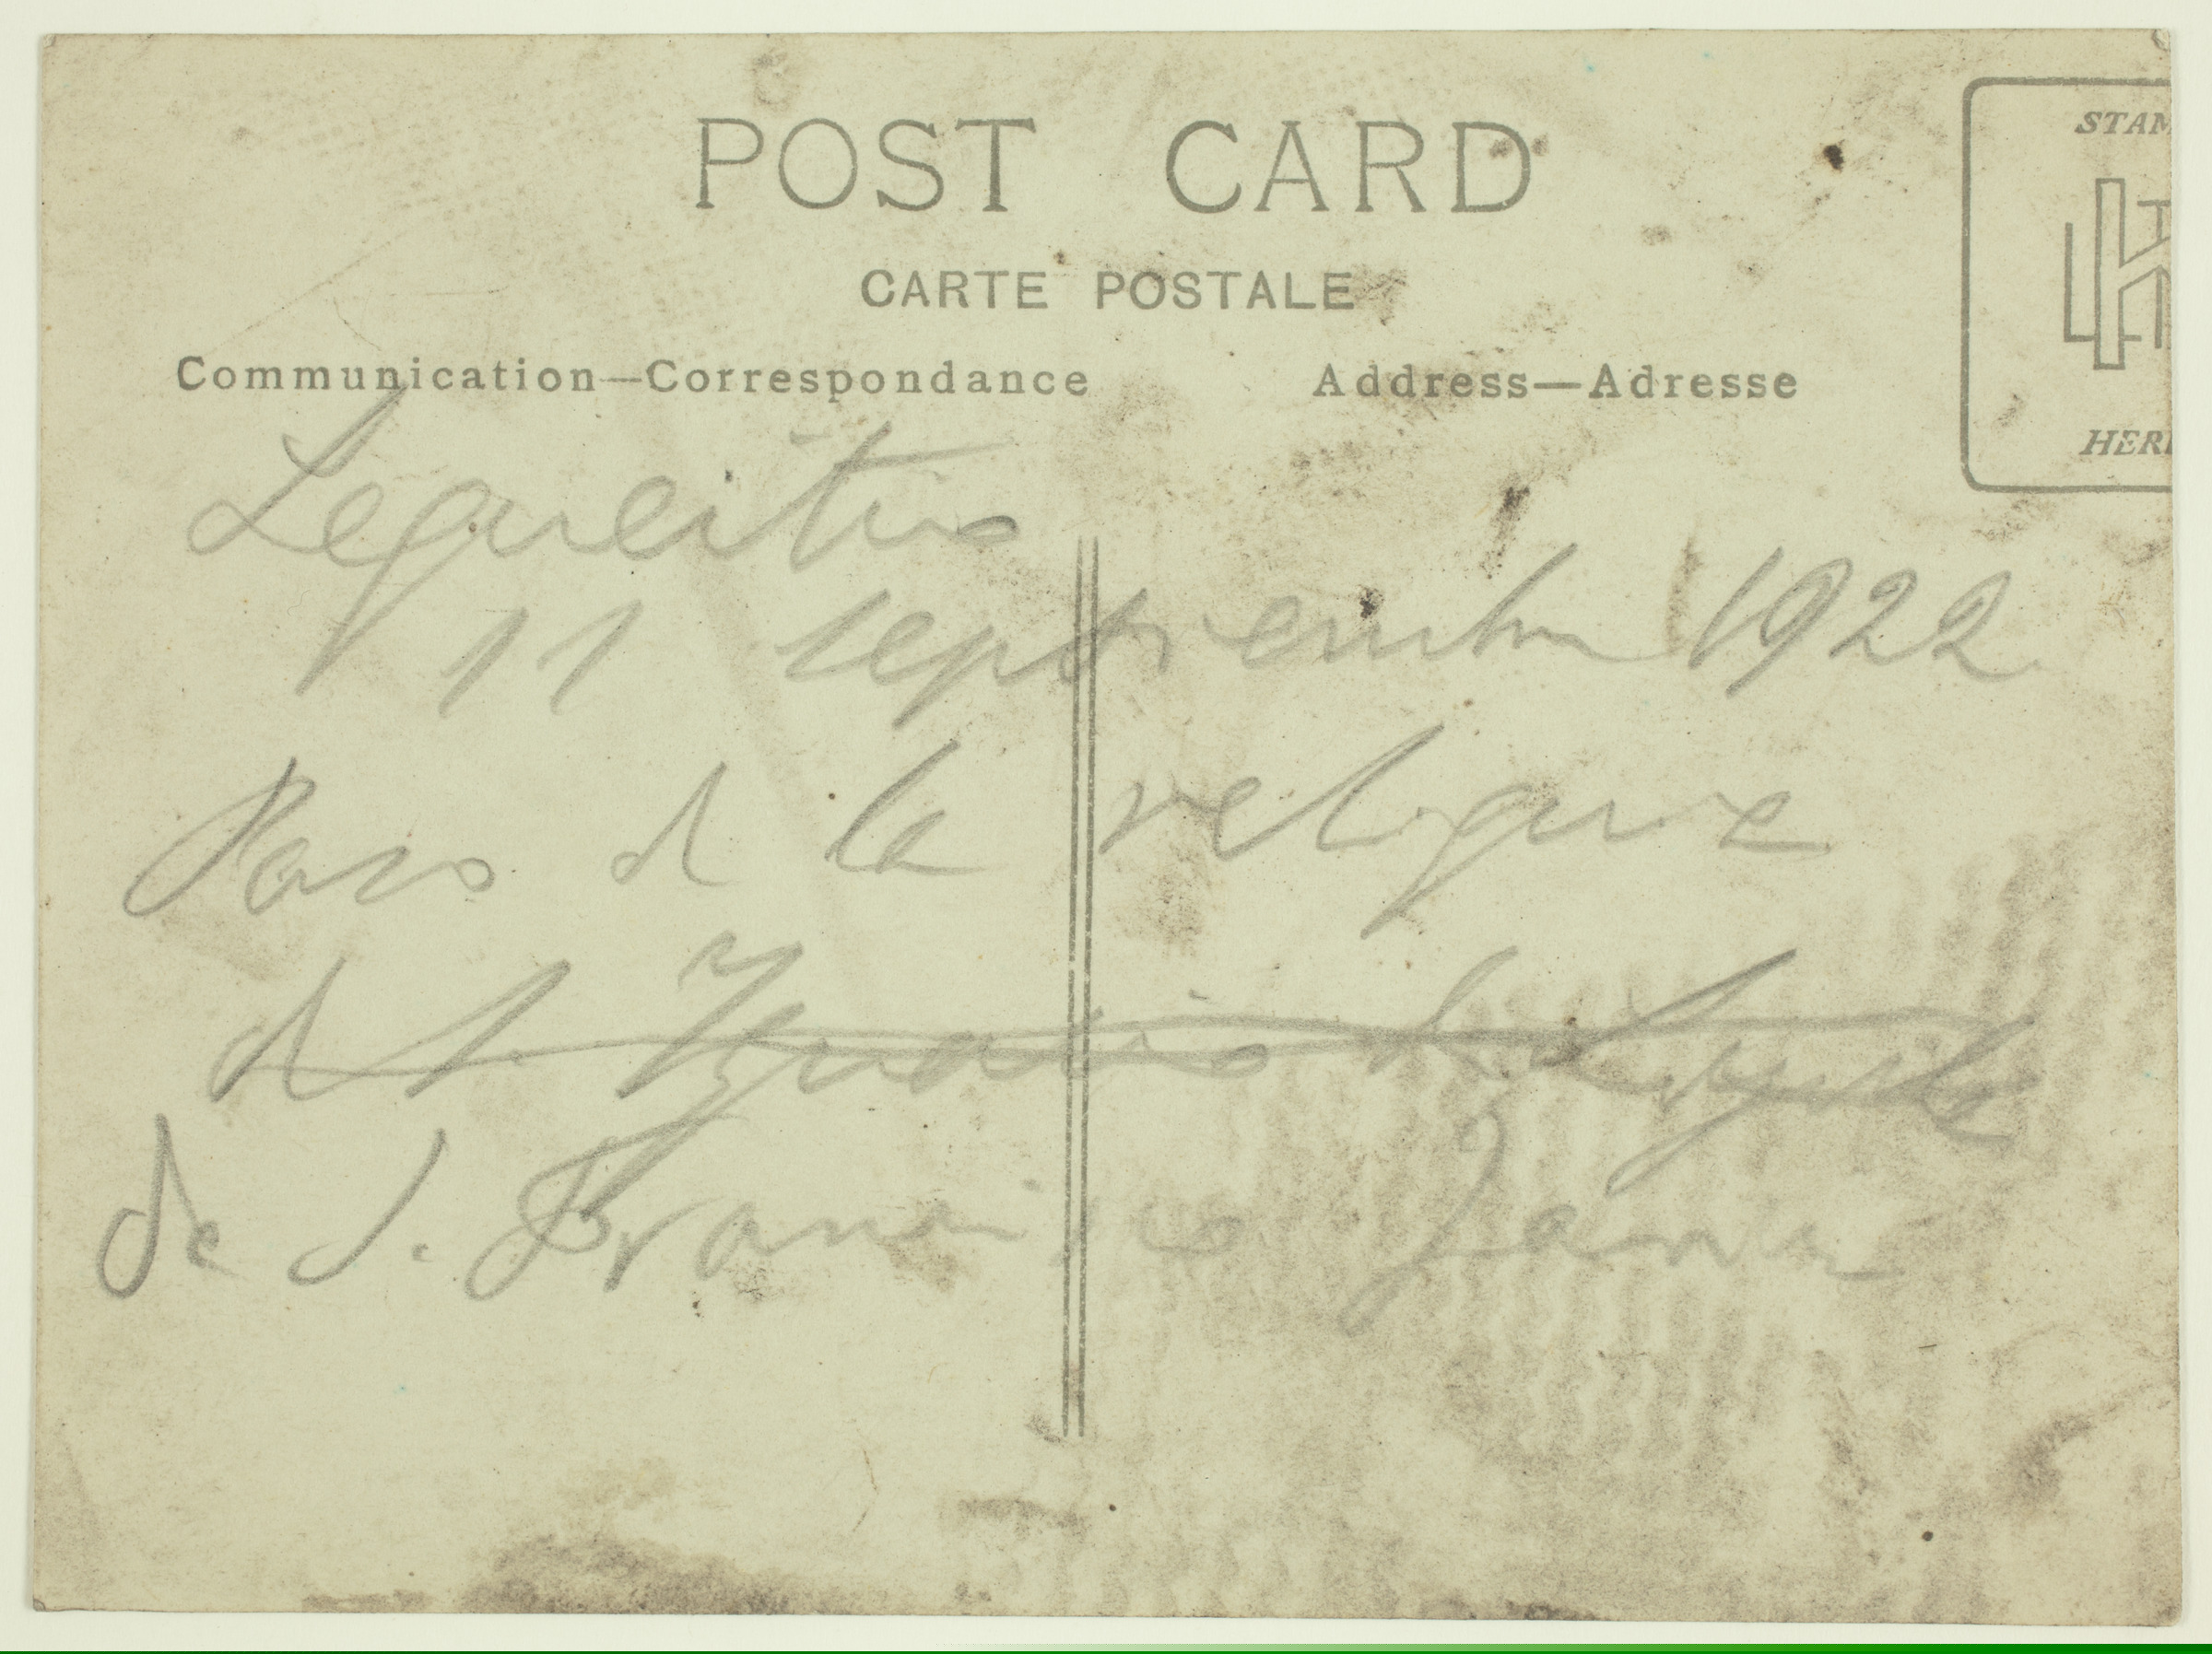 POST CARD
STAM
CARTE POSTALE
Communication—Correspondance
Address—Adresse
HERE
Lequeitio
11 septiembre 1922
Paso de la reliquia
de S. Ignacio de Loyola
de S. Francisco Javier